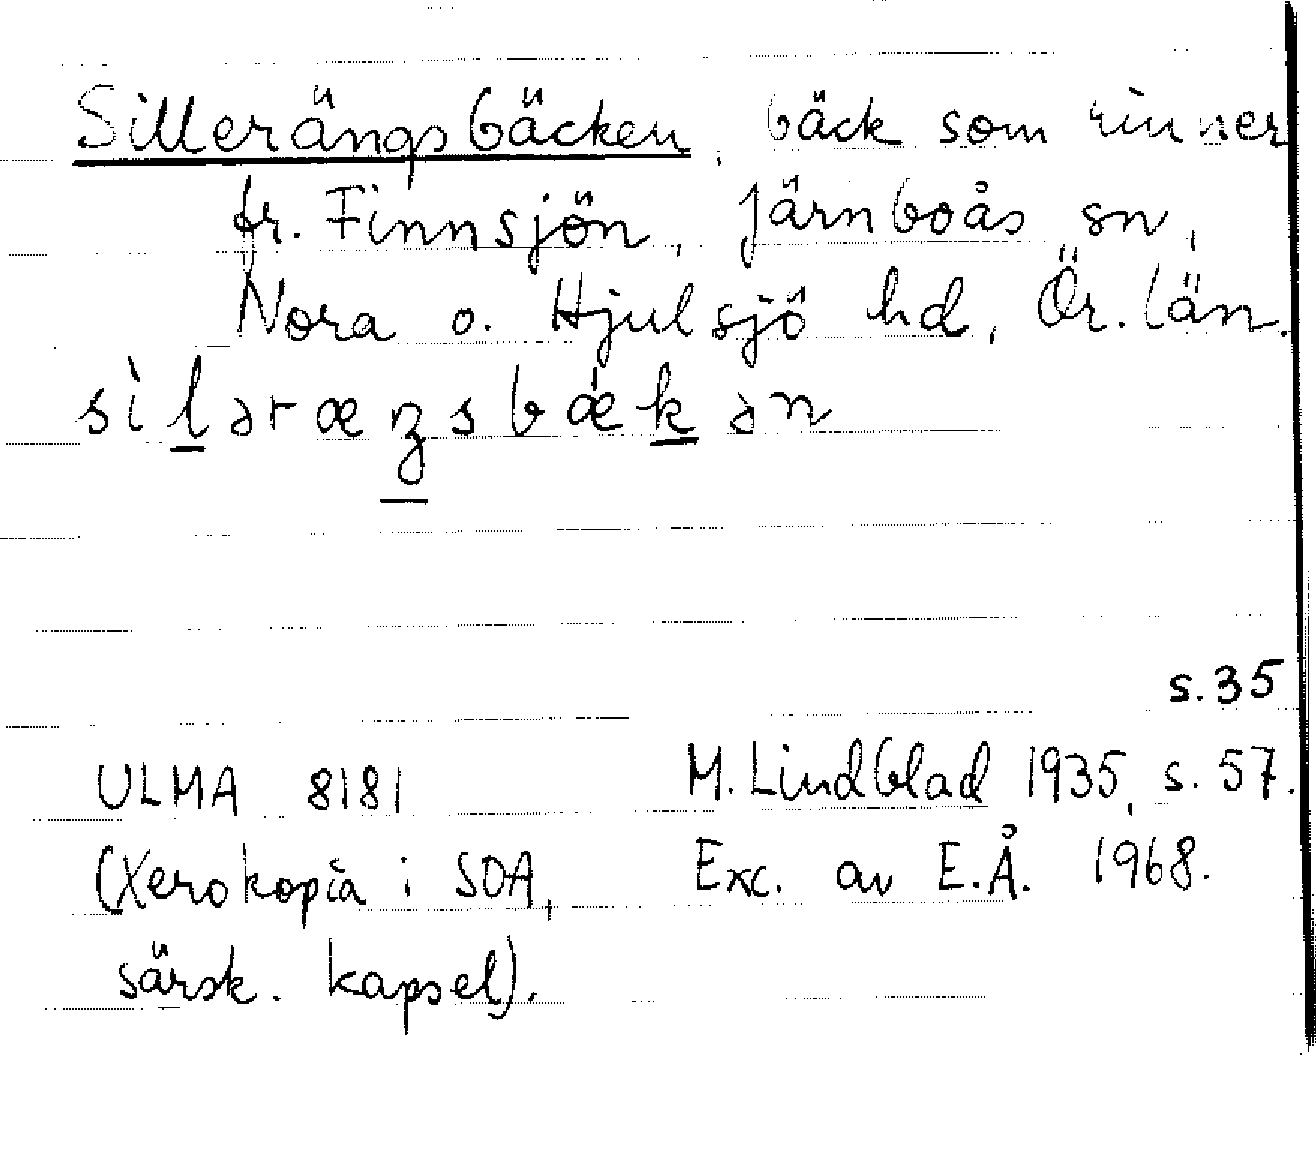 Sillerängsbäcken, bäck som rinner
fr. Finnsjön, Järnboås sn,
Nora o. Hjulsjö hd, Ör. län.
sìləræŋsbǽkən
s. 35
ULMA 8181 M. Lindblad 1935, s. 57.
(Xerokopia i SOA, Exc. av E.Å. 1968.
särsk. kapsel).